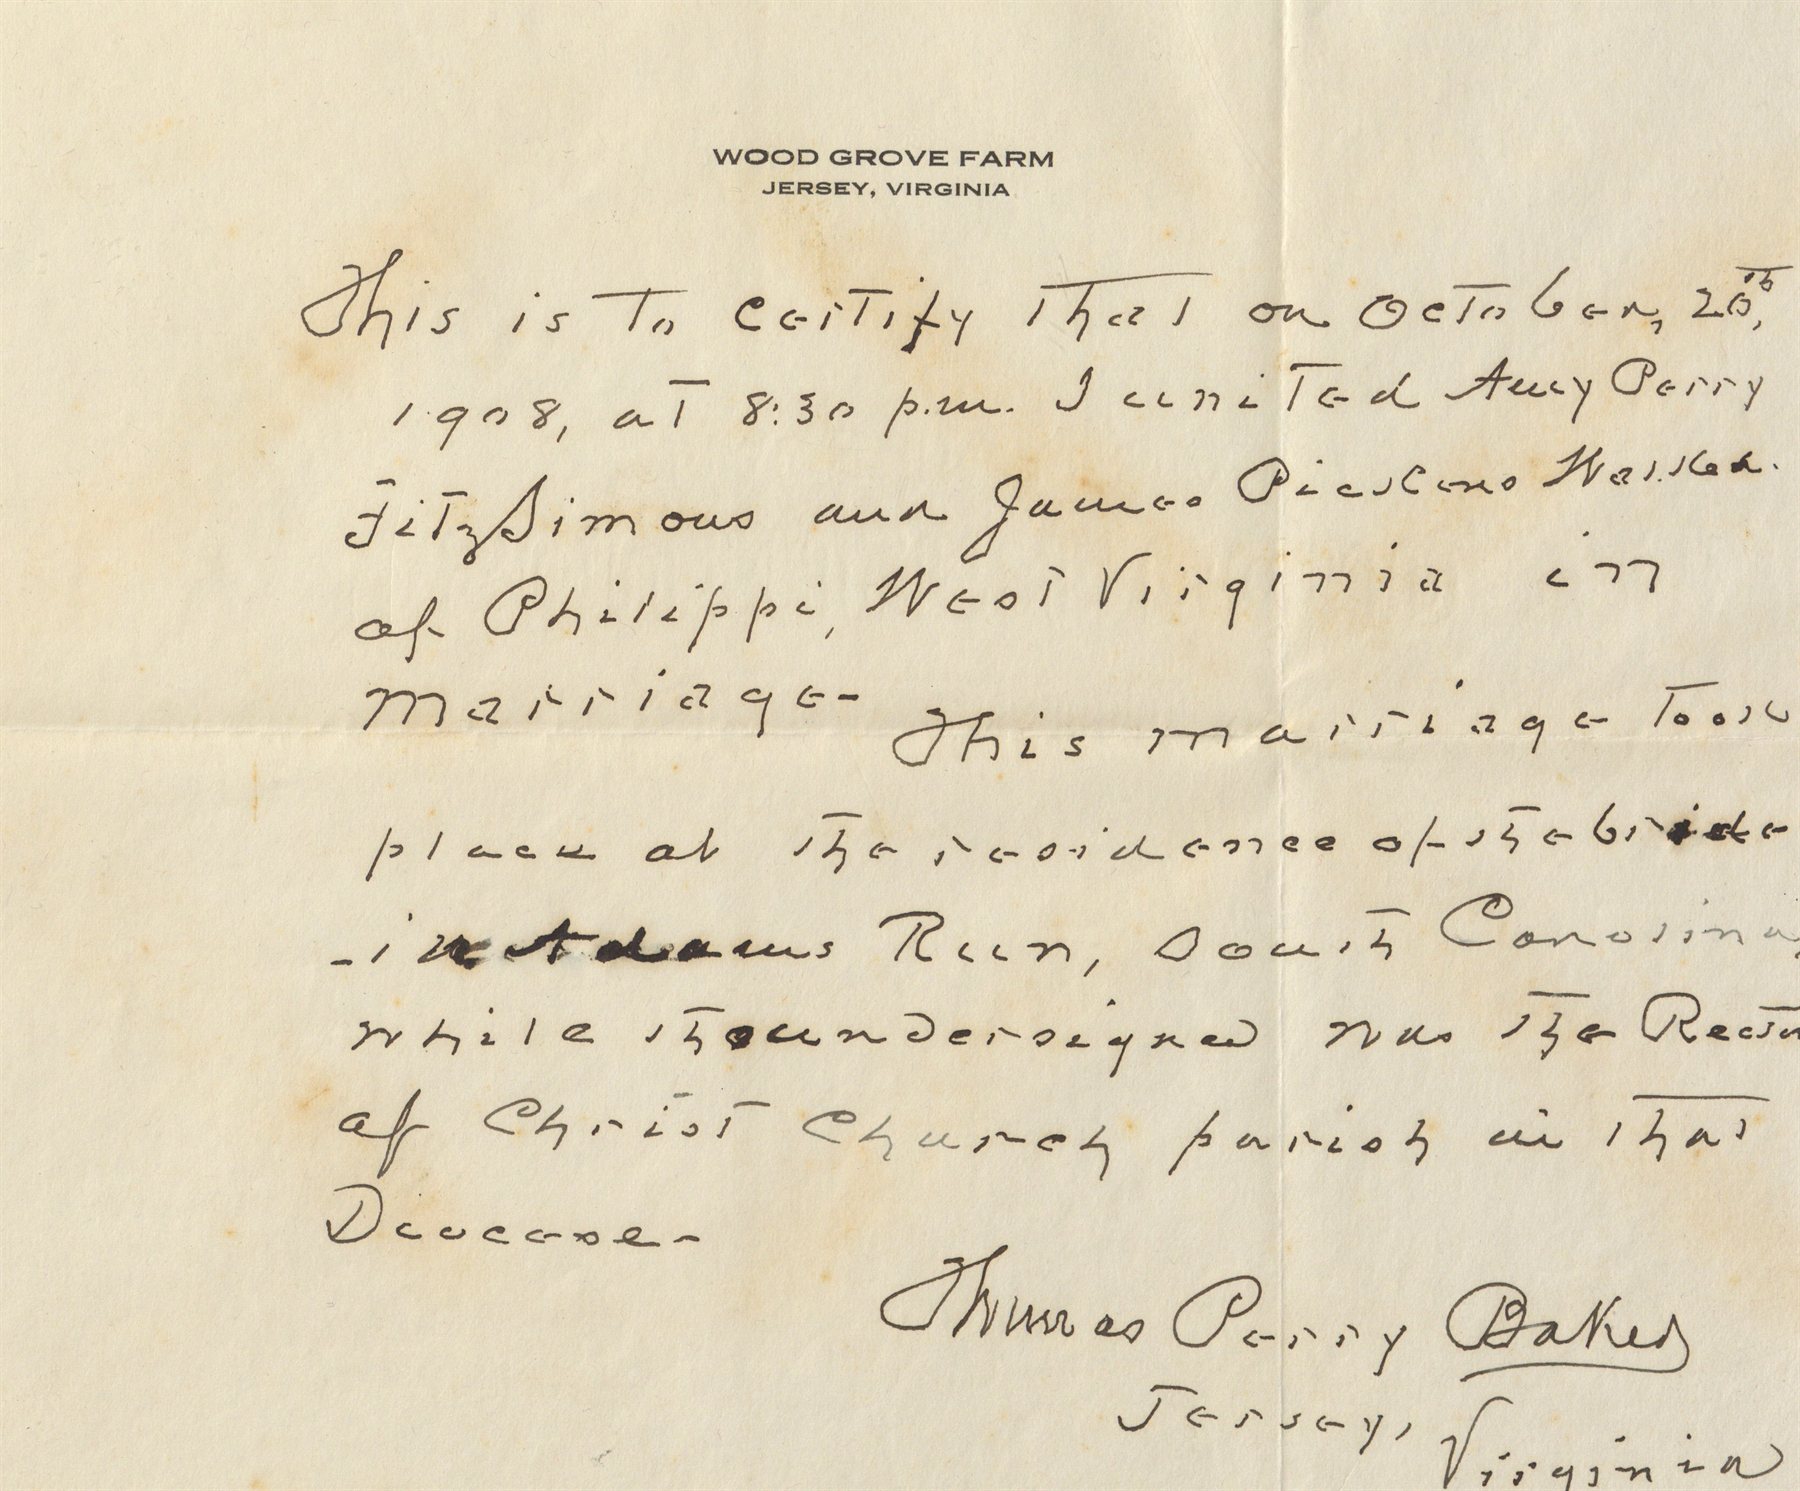 WOOD GROVE FARM
JERSEY, VIRGINIA
This is to certify that on October, 20th,
1908, at 8:30 p.m. I united Amy Perry
FitzSimons and James Pickens Walker
of Philippi, West Virginia in
marriage- This marriage took
place at the residence of the bride
-in Adams Run, South Carolina,
while the undersigned was the Rector
of Christ Church parish in that
Diocese-
Thomas Perry Baker
Jersey,
Virginia